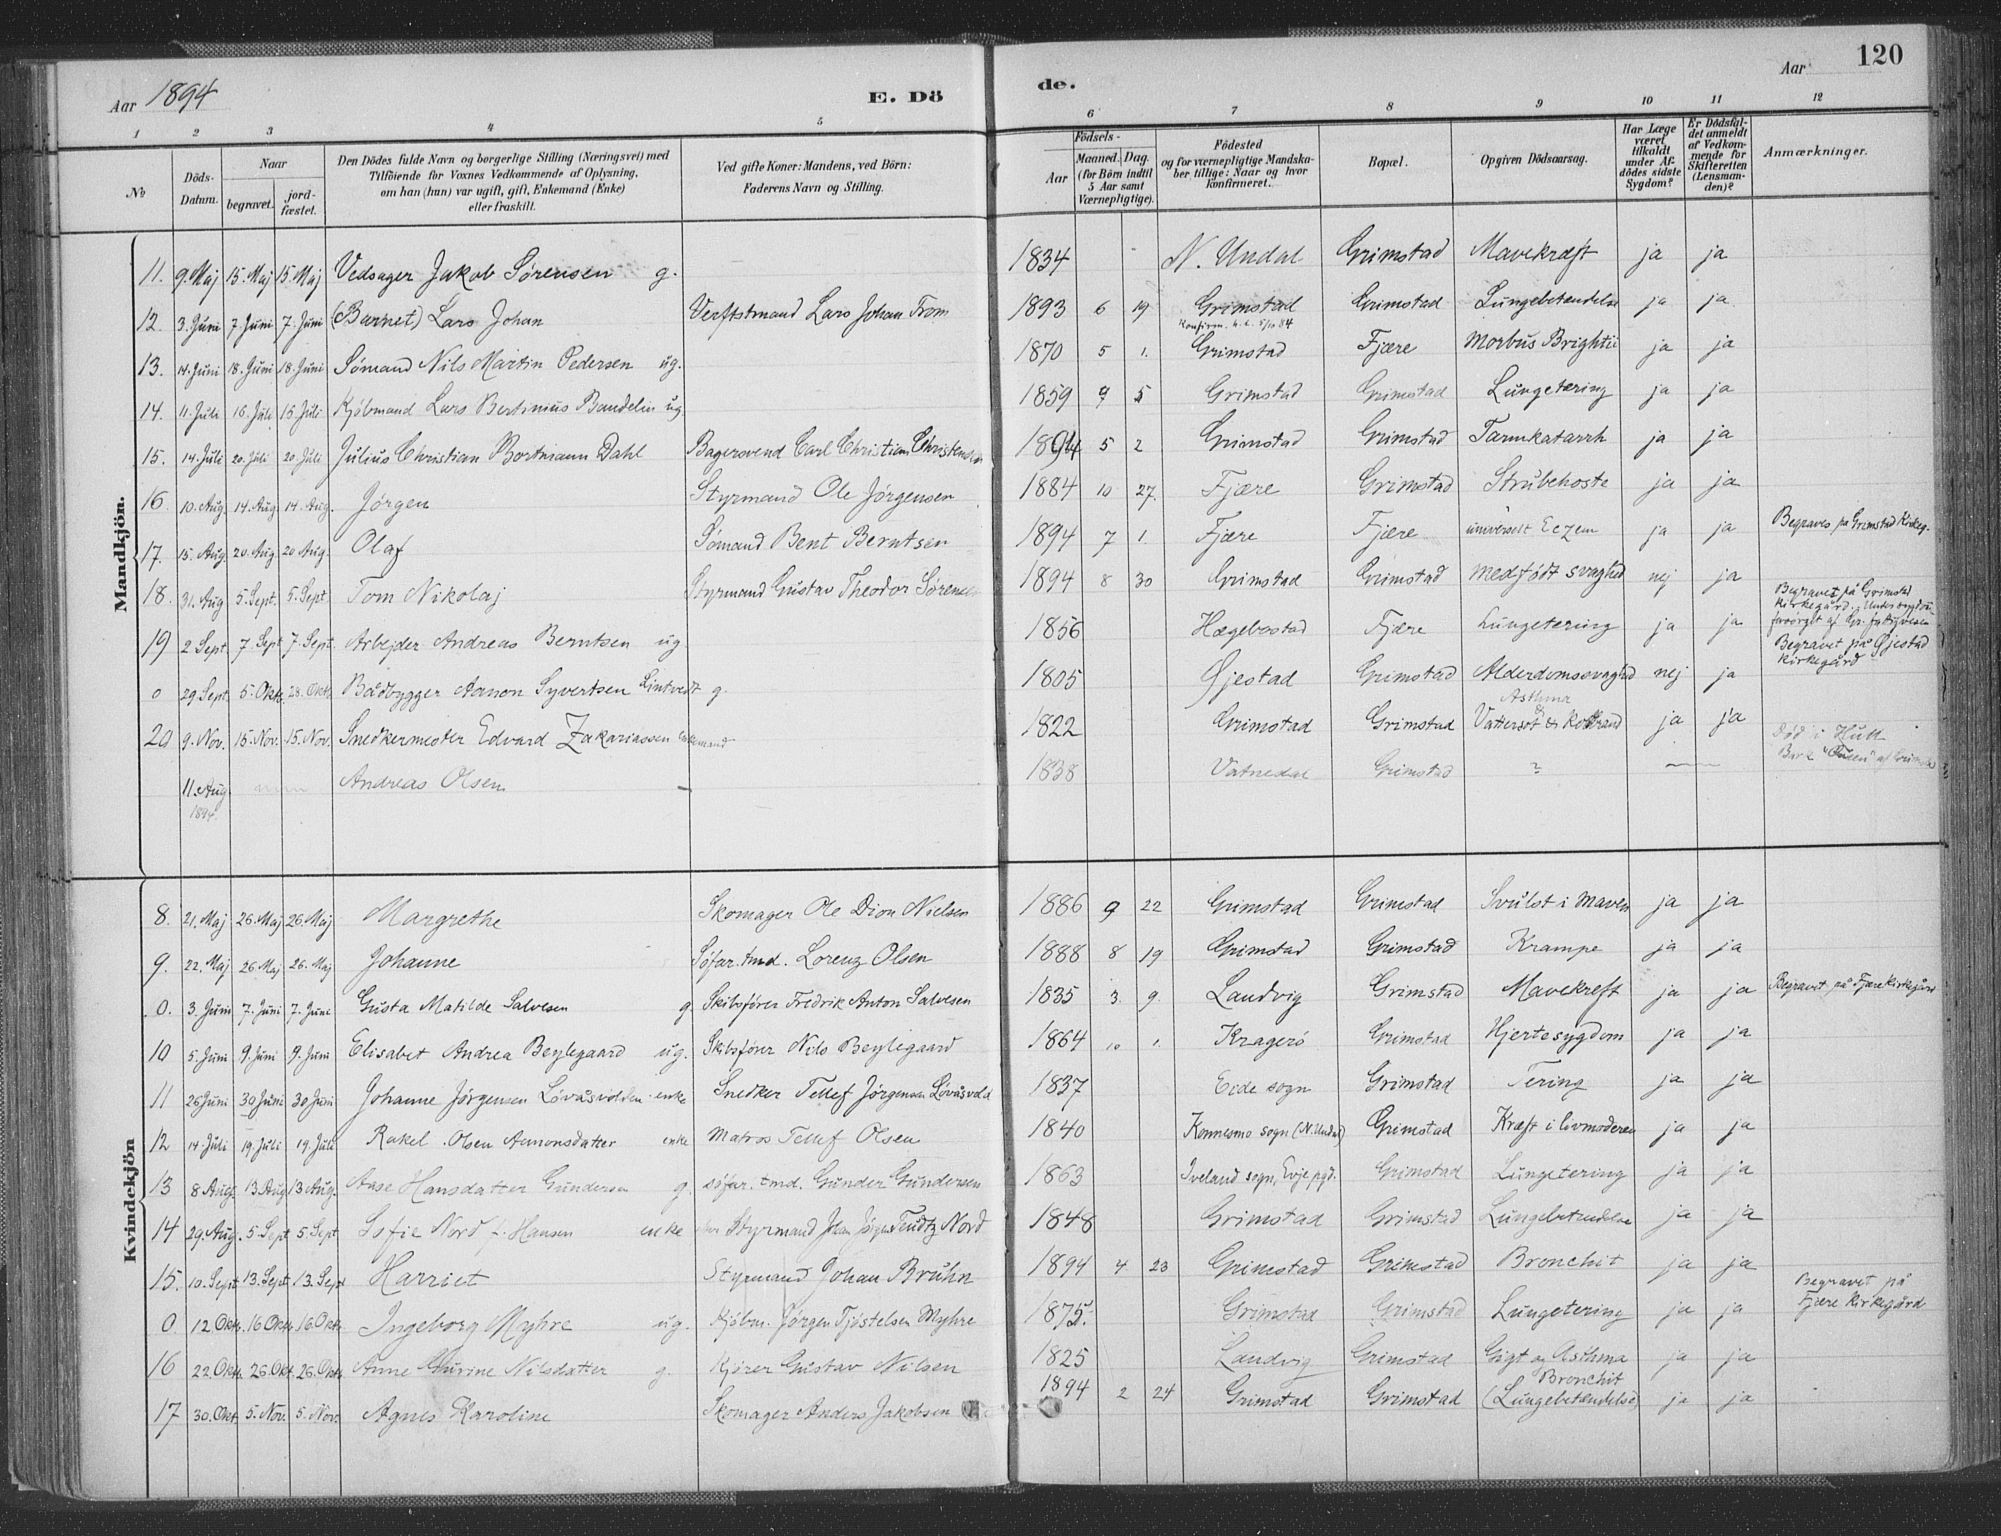 Aar 1894 E. Dö de. Aar 120
1 2 3 4 5 6 7 8 9 10 11 12
№
Döds-Datum.
Naar
begravet.
jord-fæstet.
Den Dödes fulde Navn og borgerlige Stilling (Næringsvei) med
Tilföiende for Voxnes Vedkommende af Oplysning,
om han (hun) var ugift, gift, Enkemand (Enke)
eller fraskilt.
Ved gifte Koner: Mandens, ved Börn:
Faderens Navn og Stilling.
Födsels-
Aar
Maaned. Dag.
(for Börn indtil
5 Aar samt
Værnepligtige).
Födested
og for værnepligtige Mandska-
ber tillige: Naar og hvor
konfirmeret.
Bopæl.
Opgiven Dödsaarsag.
Har Læge
været
tilkaldt
under Af-
dödes sidste
Sygdom?
Er Dödsfal-
det anmeldt
af Vedkom-
mende for
Skifteretten
(Lensman-
den)?
Anmærkninger.
Mandkjön.
11. 9. Maj 15. Maj 15. Maj Vedsager Jakob Sörensen g. 1834 N. Undal Grimstad Mavekræft ja ja
12. 3. Juni 7. Juni 7. Juni (Barnet) Lars Johan Verftsmand Lars Johan From 1893 6 19 Grimstad Grimstad Lungebetændelse ja ja
Konfirm. 5/10 84
13. 14. Juni 18. Juni 18. Juni Sømand Nils Martin Pedersen ug. 1870 5 1. Grimstad Fjære Morbus Brightii ja ja
14. 11. Juli 16. Juli 15. Juli Kjöbmand Lars Bertinius Bandelin ug. 1859 9 5 Grimstad Grimstad Lungetæring ja ja
15. 14. Juli 20. Juli 20. Juli Julius Christian Bortmann Dahl Bagersvend Carl Christian Christensen 1894 5 2 Grimstad Grimstad Tarmkatarrh ja ja
16 10. Aug. 14. Aug. 14. Aug. Jörgen Styrmand Ole Jörgensen 1884 10 27. Fjære Grimstad Strubehoste ja ja
17. 15. Aug. 20. Aug. 20 Aug. Olaf Sømand Bent Berntsen 1894 7 1. Fjære Fjære universelt Eczem ja ja Begraves på Grimstad Kirkeg.
18. 31. Aug 5. Sept. 5. Sept Tom Nikolaj Styrmand Gustav Theodor Sörensen 1894 8 30 Grimstad Grimstad Medfödt svaghed nej ja
19 2 Sept. 7. Sept 7. Sept. Arbejder Andreas Berntsen ug. 1856 Hægebostad Fjære Lungetering ja ja Begravet på Grimstad
Kirkegård.
0 29. Sept. 5. Okt. 28. Okt. Bådbygger Aanon Syvertsen Lintvedt g. 1805 Øjestad Grimstad Alderdomssvaghed nej ja Begravet på Øjestad
Kirkegård
20 9. Nov. 15. Nov. 15. Nov. Snedkermester Edvard Zakariassen enkemand 1822 Grimstad Grimstad Asthma
Vattersot & Koldbrand ja ja
11. Aug 1894. Andreas Olsen 1838 Vatnedal Grimstad ? Död i Hull
Bark "Queen" af Grimstad
Kvindekjön
8. 21. Maj 26. Maj 26. Maj Margrethe Skomager Ole Dion Nielsen 1886 9 22 Grimstad Grimstad Svulst i maven ja ja
9. 22. Maj 26 Maj 26. Maj Johanne Söfar. tmd. Lorenz Olsen 1888 8 19 Grimstad Grimstad Krampe ja ja
0. 3. Juni 7. Juni 7. Juni Gusta Matilde Salvesen g. Skibsförer Fredrik Anton Salvesen 1835 3. 9. Landvig Grimstad Mavekreft ja ja Begravet på Fjære Kirkegård
10 5. Juni 9. Juni 9. Juni Elisabet Andrea Beylegaard ug. Skibsförer Nils Beylegaard 1864 10 1. Kragerø Grimstad Hjertesygdom ja ja
11 26 Juni 30 Juni 30 Juni Johanne Jörgensen Lövåsvolden enke Snedker Tellef Jörgensen Lövåsvold 1837 Eide sogn Grimstad Tering ja ja
12 14 Juli 19. Juli 19 Juli Rakel Olsen Aanonsdatter enke Matros Tellef Olsen 1840 Konnesmo sogn (N. Undal) Grimstad Kræft i livmoderen ja ja
13 8 Aug. 13 Aug 13 Aug. Aase Hansdatter Gundersen g. söfar. tmd. Gunder Gundersen 1863 Iveland sogn, Evje pgd. Grimstad Lungetering ja ja
14 29. Aug. 5. Sept 5. Sept Sofie Nord f. Hansen enke Styrmand Jörgen Nord 1848 Grimstad Grimstad Lungebetændelse ja ja
15. 10. Sept 13. Sept. 13. Sept Harriet Styrmand Johan Bruhn 1894 4 23 Grimstad Grimstad Bronchit ja ja
0 12 Okt. 16 Okt. 16. Okt. Ingeborg Myhre ug. Kjöbm. Jörgen Tjöstelsen Myhre 1875. Grimstad Grimstad Lungetering ja ja Begravet på
Fjære Kirkegård
16 22. Okt. 26. Okt. 26. Okt. Anne Gurine Nilsdatter g. Kjörer Gustav Nilsen 1825 Landvig Grimstad Gigt og Asthma ja ja
17 30. Okt. 5. Nov. 5. Nov. Agnes Karoline Skomager Anders Jakobsen 1894 2 24 Grimstad Grimstad Bronchit
(Lungebetændelse) ja ja